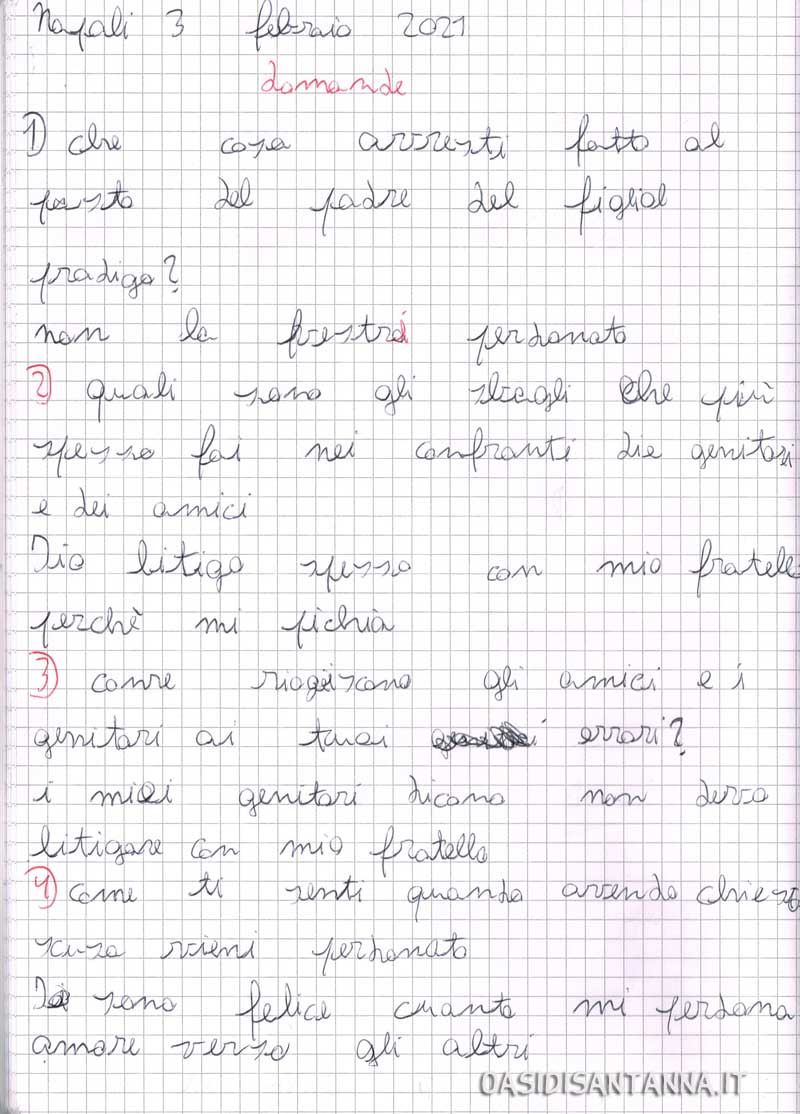 Napoli 3 febraio 2021
domande
1) che cosa avresti fatto al
posto del padre del figliol
prodigo?
non la prestrei perdonato
2) quali sono gli sbagli che più
spesso fai nei confronti die genitori
e dei amici
Iio litigo spesso con mio fratello
perchè mi pichia
3) come riogiscono gli amici e i
genitori ai tuoi errori?
i miei genitori dicono non devo
litigare con mio fratello
4) come ti senti quando avendo chiesto
scusa vieni perdonato
Io sono felice cuanto mi perdona
amore verso gli altri
OASIDISANTANNA.IT